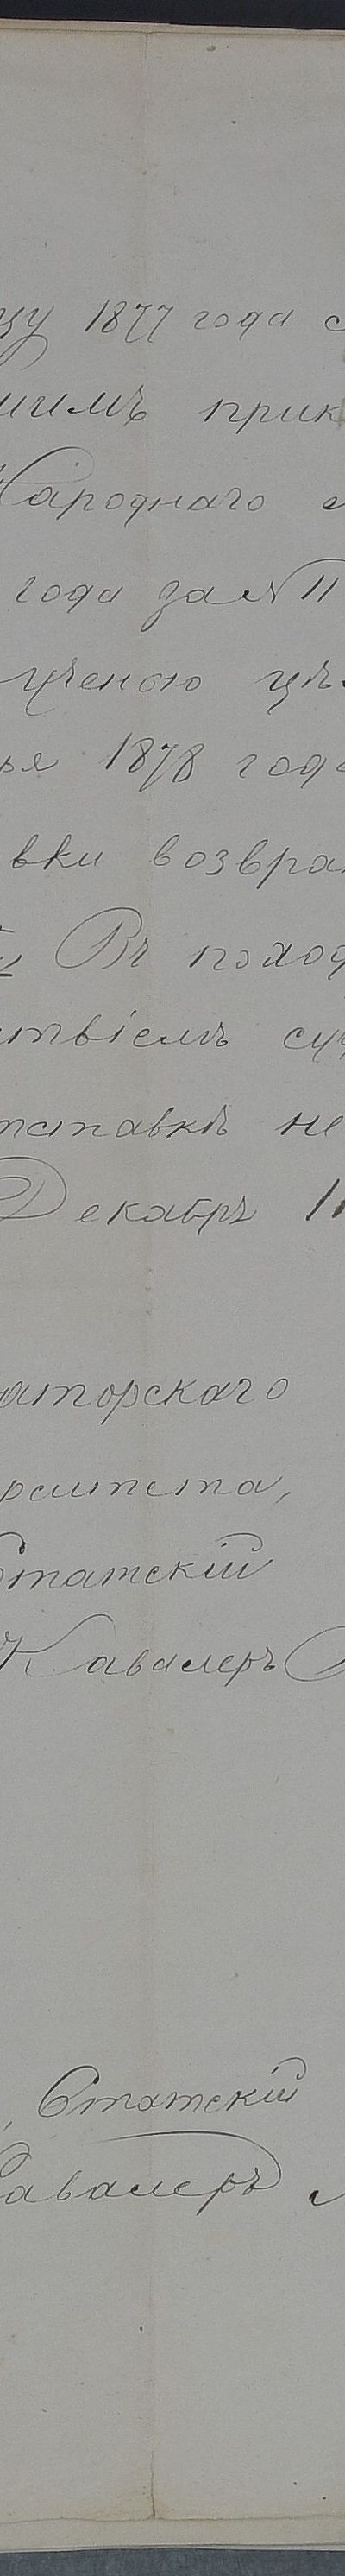 цу 1877 года с
шимъ прик
Народнаго
года за № 11
ученою цѣ
ря 1878 года
вки возвра
Въ поход
ствіемъ су
тставкѣ не
Декабрь 1
аторскаго
рситета,
Статскій
Кавалеръ
Статскій
Кавалеръ